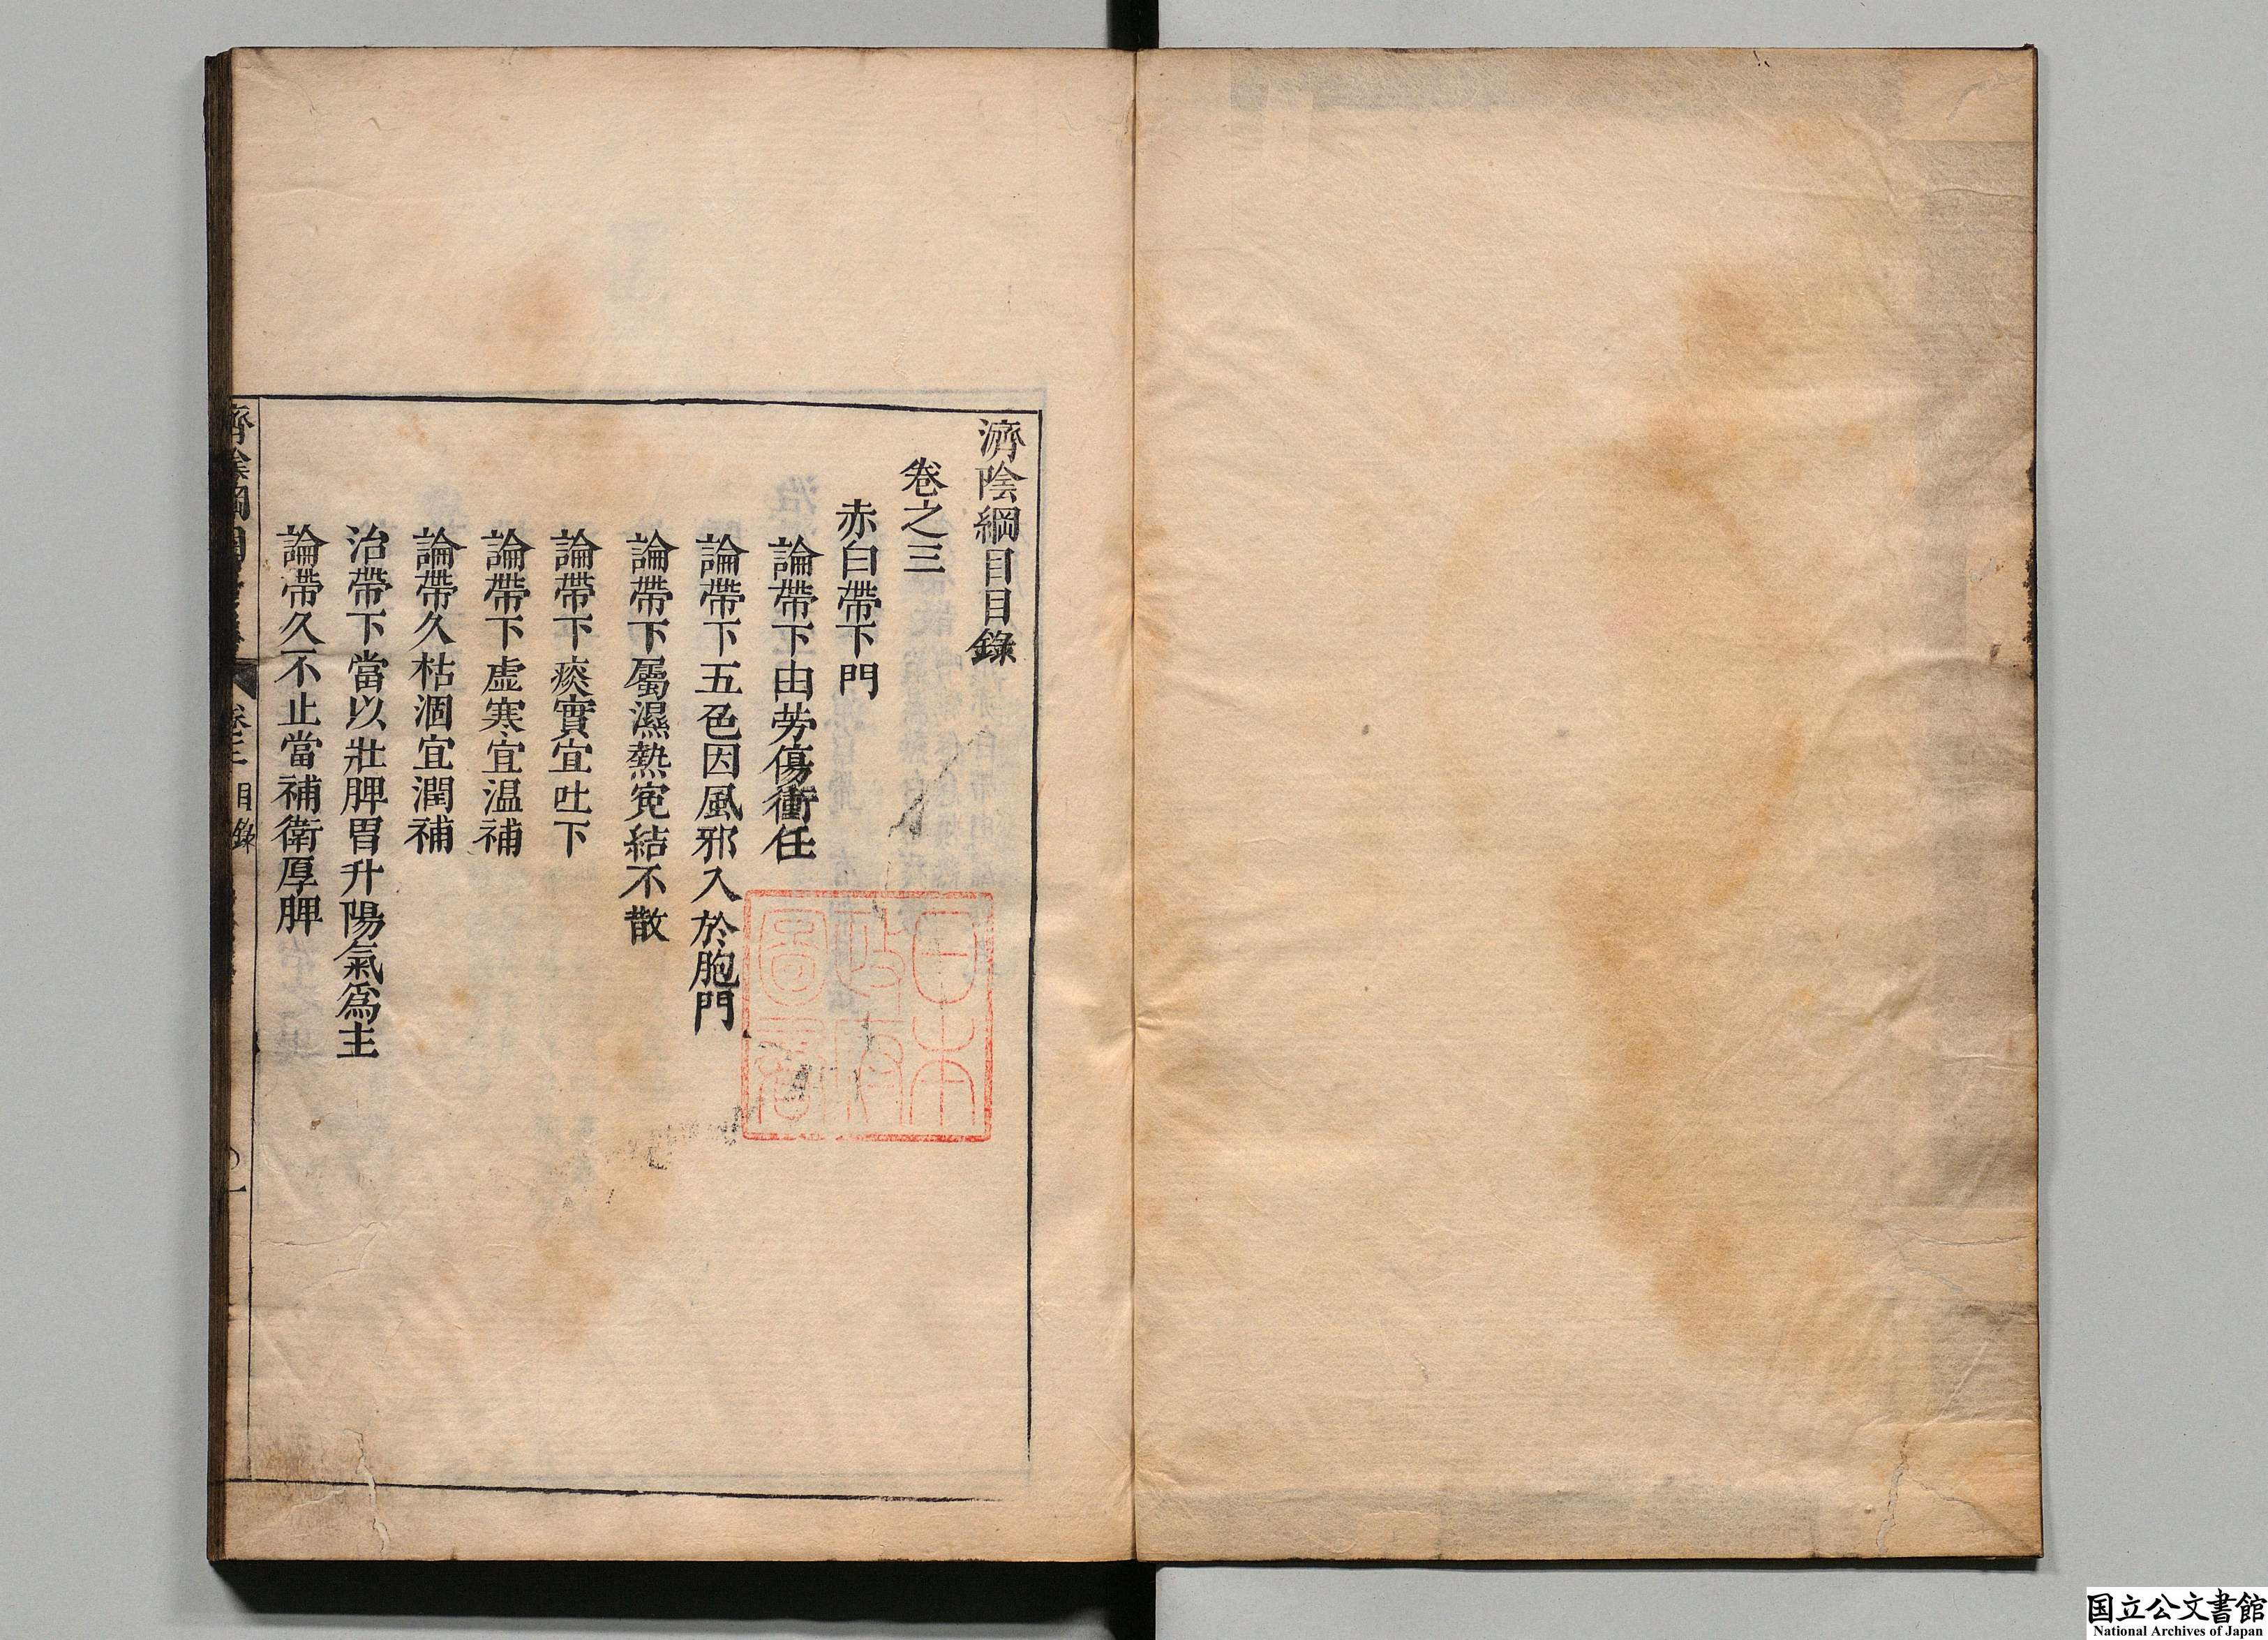 濟陰綱目目錄
卷之三
赤白帶下門
論帶下由勞傷衝任
論帶下五色因風邪入於胞門
論帶下屬濕熱寃結不散
論帶下痰實宜吐下
論帶下虛寒宜温補
論帶久枯涸宜潤補
治帶下當以壯脾胃升陽氣爲主
論帶久不止當補衛厚脾
濟陰綱目 卷之三 目錄 一
日本
政府
圖書
国立公文書館
National Archives of Japan